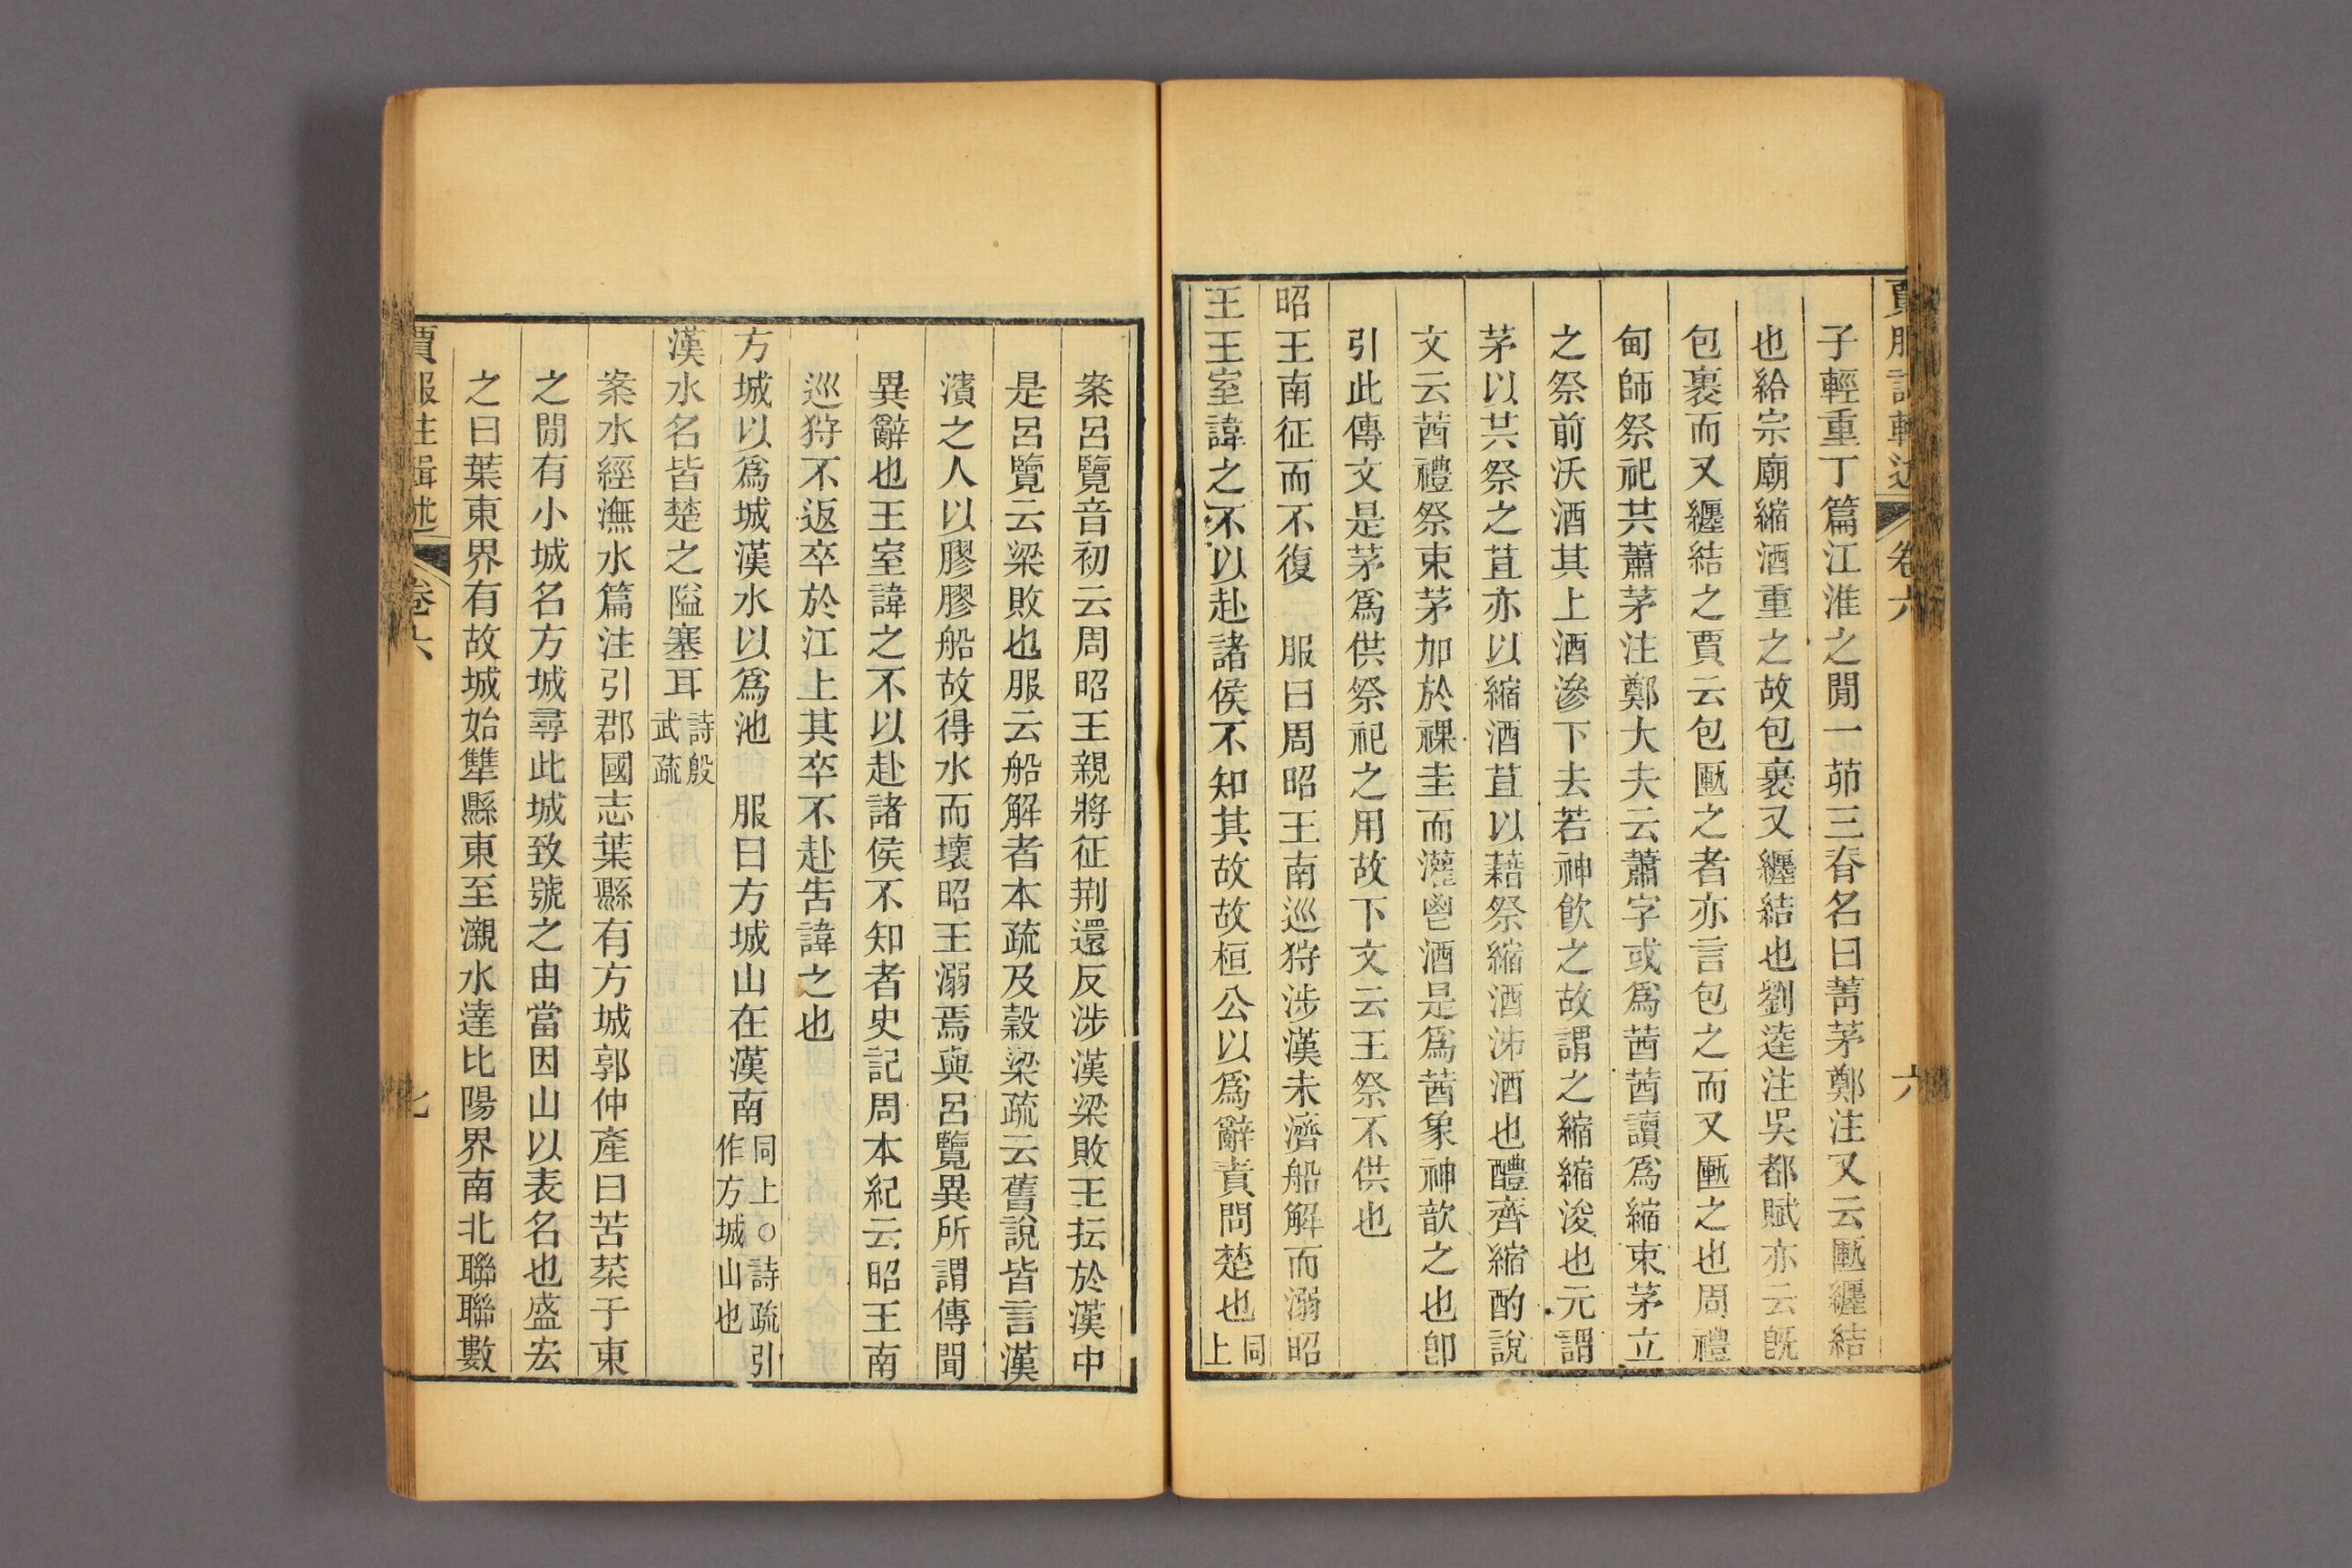 賈服註輯述 卷六 六
子輕重丁篇江淮之閒一茆三脊名曰菁茅鄭注又云匭纏結
也給宗廟縮酒重之故包裹又纏結也劉逵注吳都賦亦云旣
包裹而又纏結之賈云包匭之者亦言包之而又匭之也周禮
甸師祭祀共蕭茅注鄭大夫云蕭字或爲莤莤讀爲縮束茅立
之祭前沃酒其上酒滲下去若神飮之故謂之縮縮浚也元謂
茅以共祭之苴亦以縮酒苴以藉祭縮酒泲酒也醴齊縮酌說
文云莤禮祭束茅加於祼圭而灌鬯酒是爲莤象神歆之也卽
引此傳文是茅爲供祭祀之用故下文云王祭不供也
昭王南征而不復 服曰周昭王南巡狩涉漢未濟船解而溺昭
王王室諱之不以赴諸侯不知其故故桓公以爲辭責問楚也同上
案呂覽音初云周昭王親將征荆還反涉漢梁敗王抎於漢中
是呂覽云梁敗也服云船解者本疏及穀梁疏云舊說皆言漢
濱之人以膠膠船故得水而壞昭王溺焉與呂覽異所謂傳聞
異辭也王室諱之不以赴諸侯不知者史記周本紀云昭王南
巡狩不返卒於江上其卒不赴告諱之也
方城以爲城漢水以爲池 服曰方城山在漢南同上○詩疏引作方城山也
漢水名皆楚之隘塞耳詩殷武疏
案水經潕水篇注引郡國志葉縣有方城郭仲產曰苦菜于東
之閒有小城名方城尋此城致號之由當因山以表名也盛宏
之曰葉東界有故城始犨縣東至瀙水達比陽界南北聯聯數
賈服注輯述 卷六 七